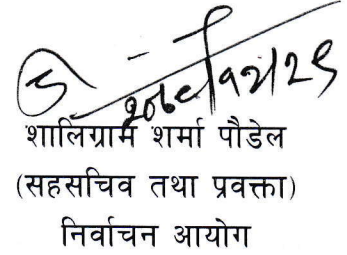 २०७८।१२।२९
शालिग्राम शर्मा पौडेल
(सहसचिव तथा प्रवक्ता)
निर्वाचन आयोग